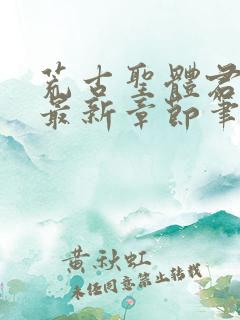 荒古聖體
最新章節筆
黄秋虹
未经同意禁止转载